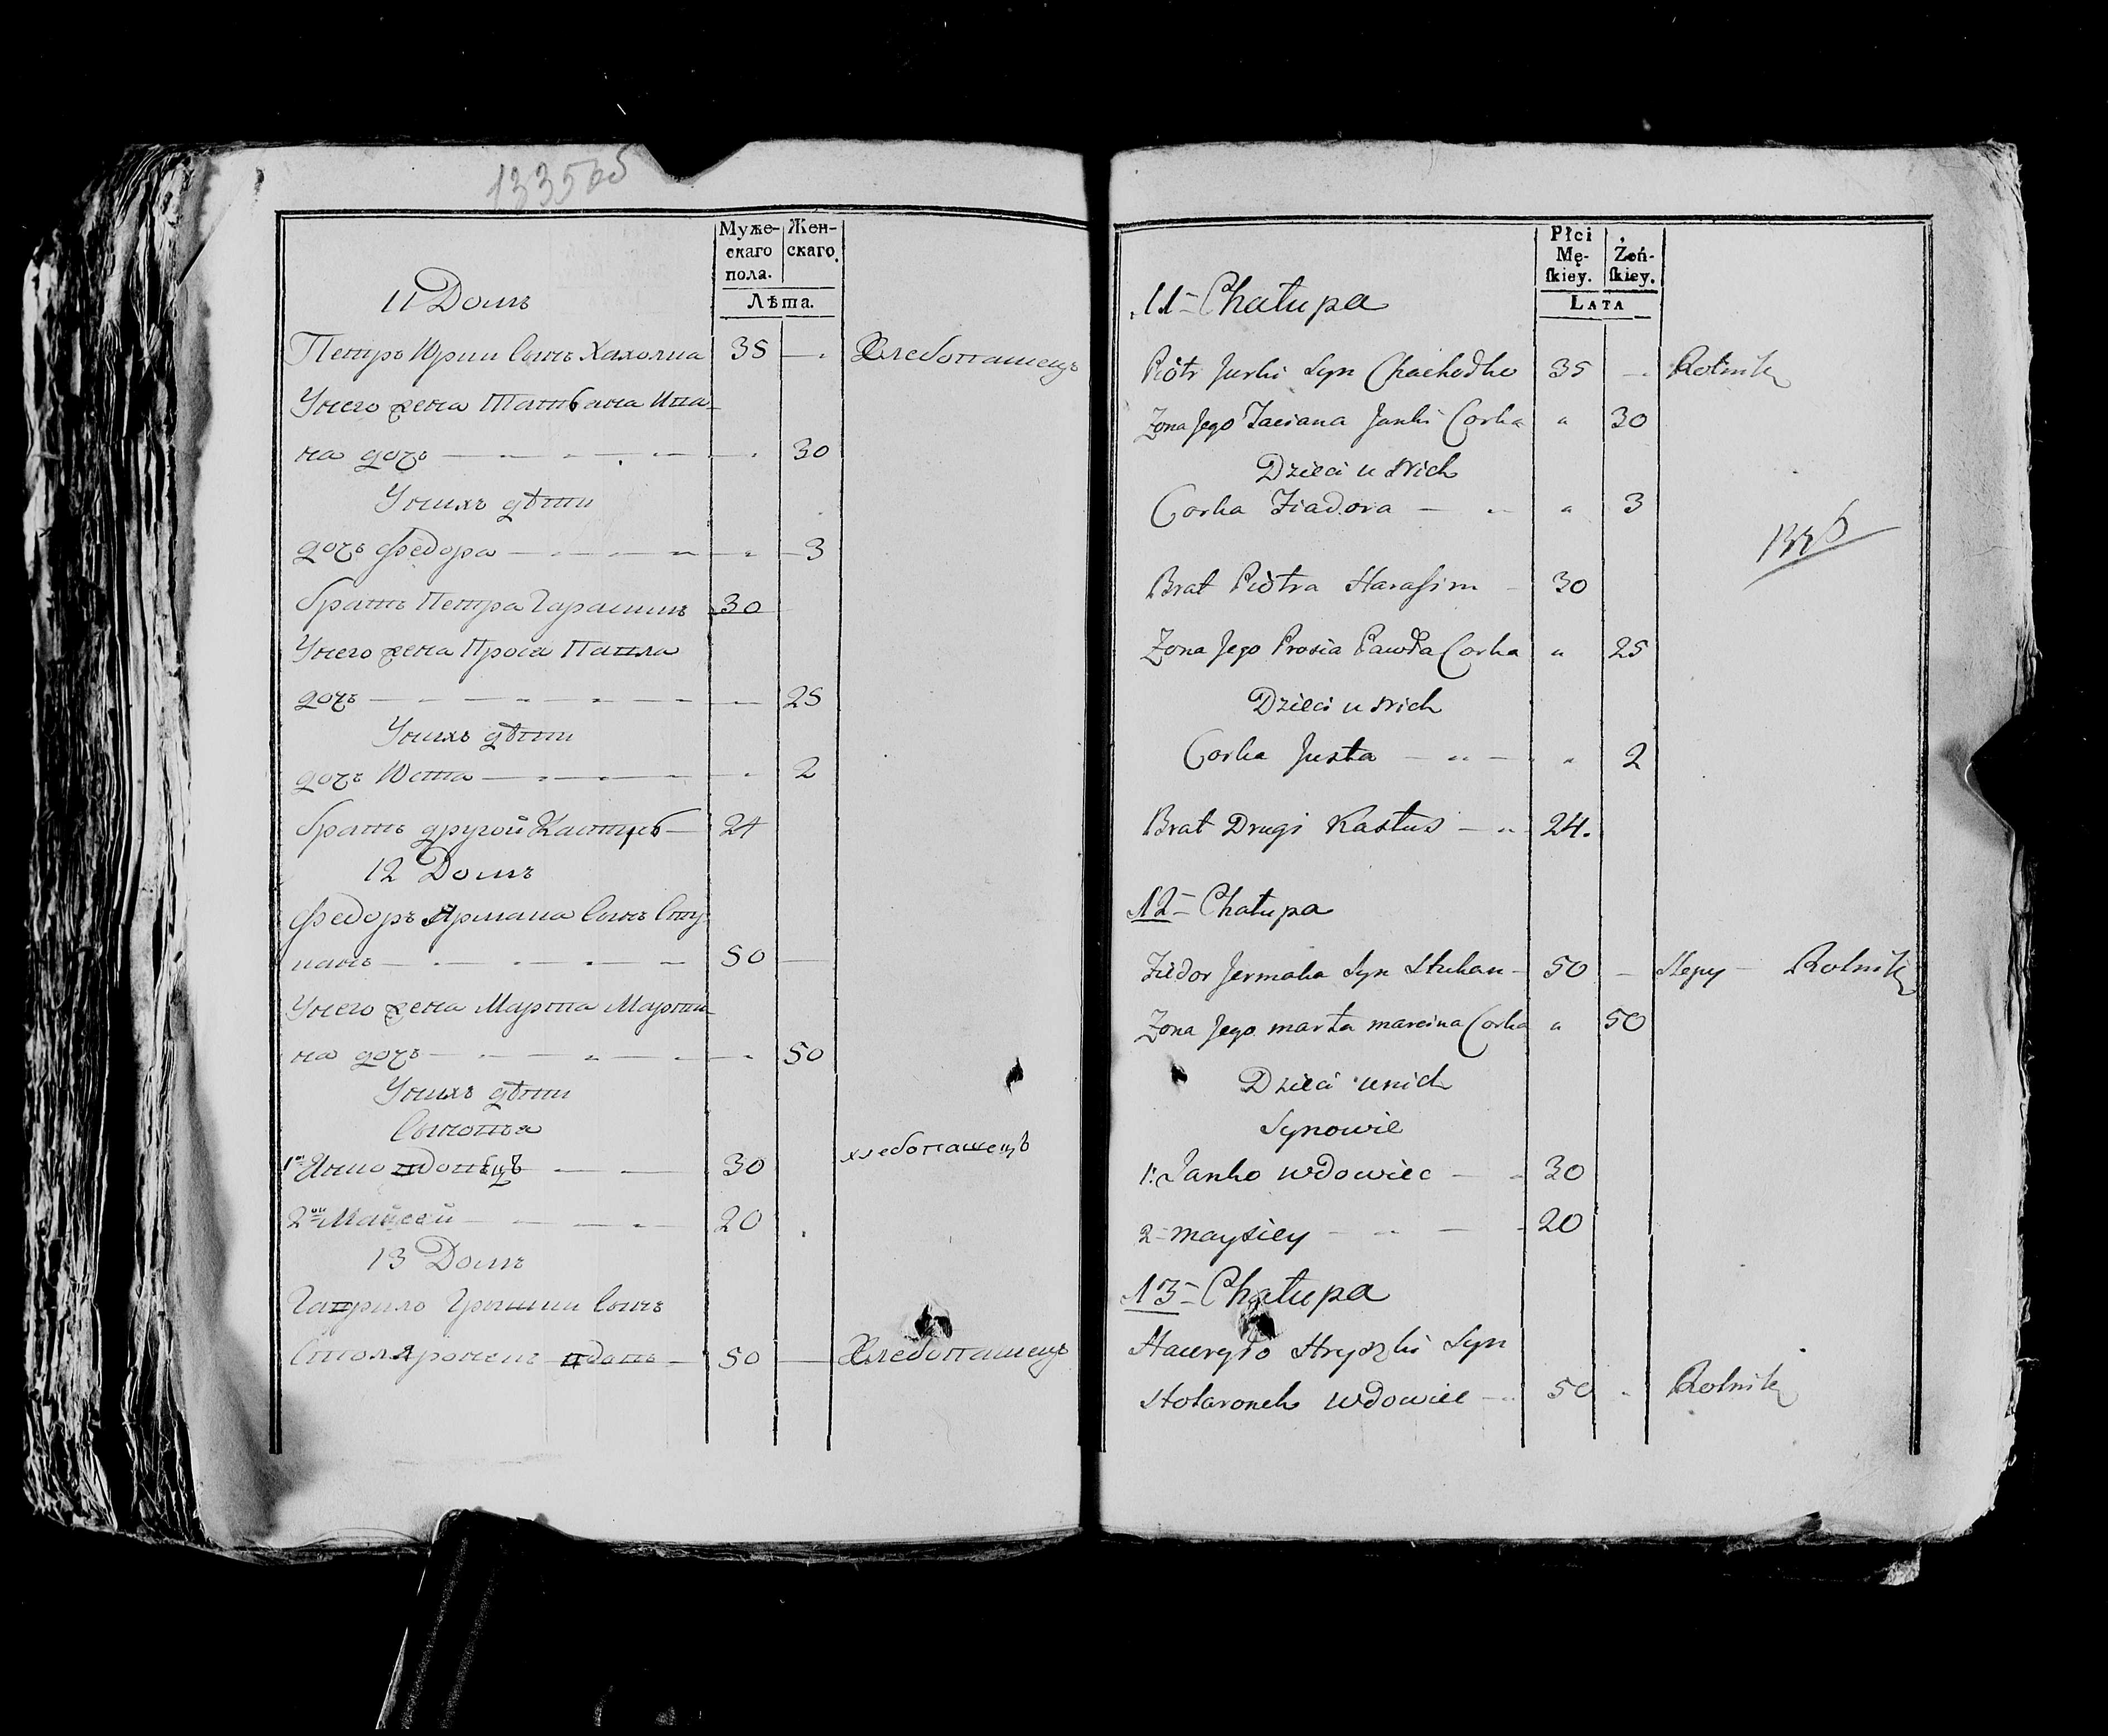 1335об
Муже-
скаго
пола.
Жен-
скаго.
Лѣта.
11 Домъ
Петръ Юрки Сынъ 35 — Хлебопашецъ
Унего жена Татьяна Ива-
на дочь — 30
Унихъ дѣти
дочь Федора — 3
братъ Петра Гарасимъ 30
Унего жена Прося Павла
дочь — 25
Унихъ дѣти
дочь Юста — 2
братъ другой Кастусь — 24
12 Домъ
Федоръ Ярмака Сынъ Сту
канъ — 50 —
Унего жена Марта Марти-
на дочь — 50
Унихъ дѣти
Сыновья
1й Янко вдовецъ — 30 хлебопашецъ
2ой Майсей — 20
13 Домъ
Гаврило Гришки Сынъ
Столяронекъ вдовъ — 50 — Хлебопашецъ
Płci
Mę-
skiey.
Żeń-
skiey.
LATA
11 - Chałupa
Piotr Jurki Syn 35 — Rolnik
Zona Jego Taciana Janki Corka " 30
Dzieci u Nich
Corka Fiadora — " 3
1336
Brat Piotra Harassim - 30
Zona Jego Prosia Pawła Corka " 25
Dzieci u Nich
Corka Justa — " 2
Brat Drugi Kastus — 24.
12 - Chałupa
Fiedor Jermaka Syn Stukan - 50 — Slepy — Rolnik
Zona Jego marta marcina Corka " 50
Dzieci unich
Synowie
1. Janko wdowiec — 30
2 - maysiey — 20
13 - Chałupa
Hawryło Hryszki Syn
Stolaronek wdowiec — 50 - Rolnik